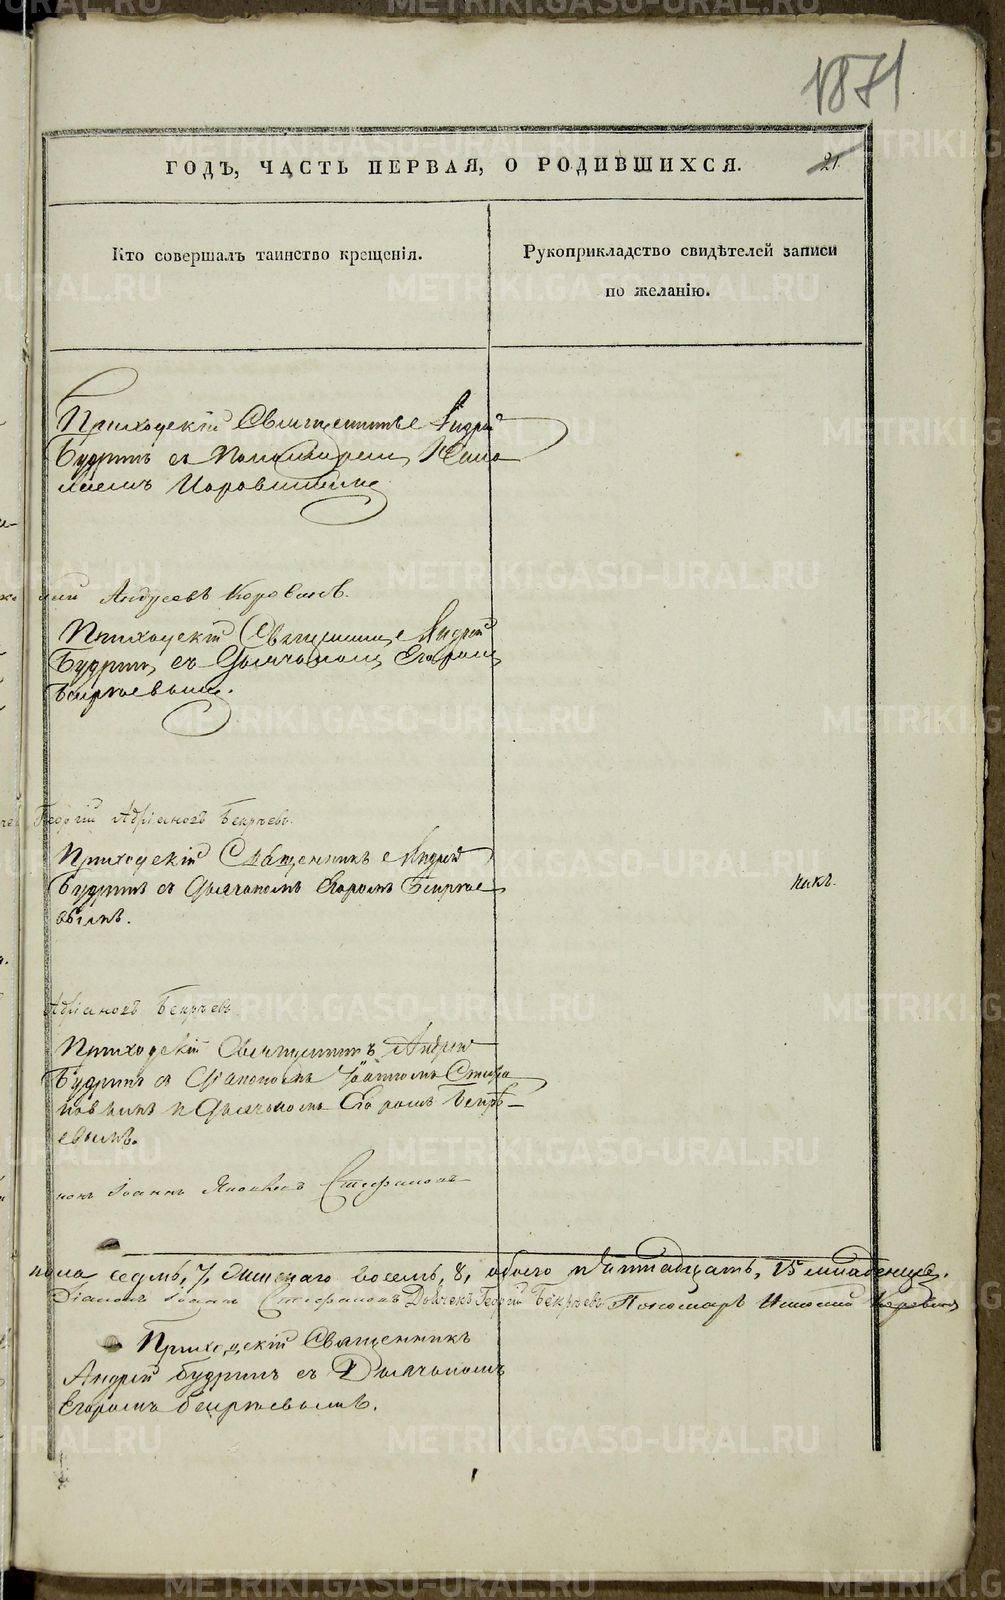 1871
ГОДЪ, ЧАСТЬ ПЕРВАЯ, О РОДИВШИХСЯ.
21.
Кто совершалъ таинство крещенія.
Рукоприкладство свидѣтелей записи
по желанію.
Приходскій Священникъ Андрей
Будринъ съ Пономаремъ
Коровинымъ
Андреевъ Коровинъ.
Приходскій Священникъ Андрей
Будринъ съ Дьячкомъ Егоромъ
Бекряевымъ.
Георгій Адріановъ Бекряевъ.
Приходскій Священникъ Андрей
Будринъ съ Дьячкомъ Егоромъ Бекряе
вымъ.
никъ.
Адріановъ Бекряевъ
Приходскій Священникъ Андрей
Будринъ съ Діакономъ Іоанномъ Стефа
новымъ и Дьячкомъ Егоромъ Бекря-
евымъ.
конъ Іоаннъ Яковлевъ Стефановъ
пола седмь, 7, женскаго восемь, 8, обоего пятнадцать, 15 младенцевъ.
Діаконъ Іоаннъ Стефановъ Дьячекъ Георгій Бекряевъ Пономарь Коровинъ
Приходскій Священникъ
Андрей Будринъ съ Дьячкомъ
Егоромъ Бекряевымъ.
METRIKI.GASO-URAL.RU